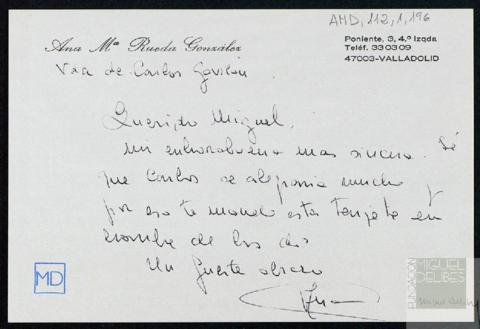 AMD, 112, 1, 196
Ana Mª Rueda González
Poniente, 3, 4.º Izqda
Teléf. 33 03 09
47003-VALLADOLID
Vda de Carlos Gavilán
Querido Miguel,
mi enhorabuena mas sincera. Sé
que Carlos se alegraria mucho y
por eso te mando esta tarjeta en
nombre de los dos
Un fuerte abrazo
Ana
MD
FUNDACIÓN
MIGUEL
DELIBES